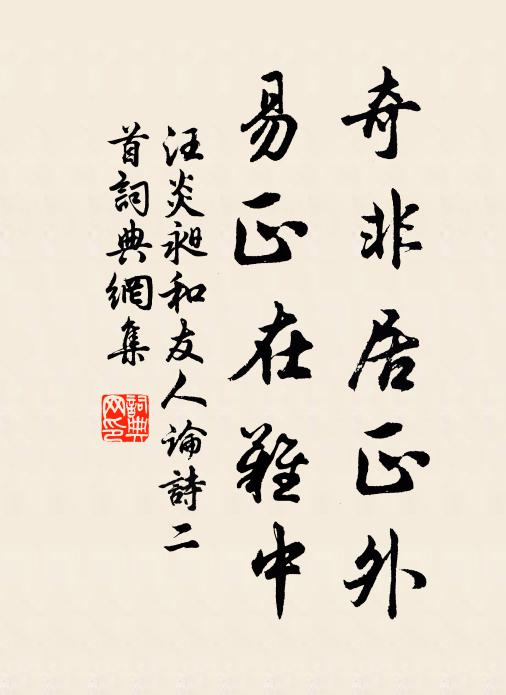 奇非居正外
易正在難中
汪炎昶和友人論詩二
首詞典網集
詞典
网印